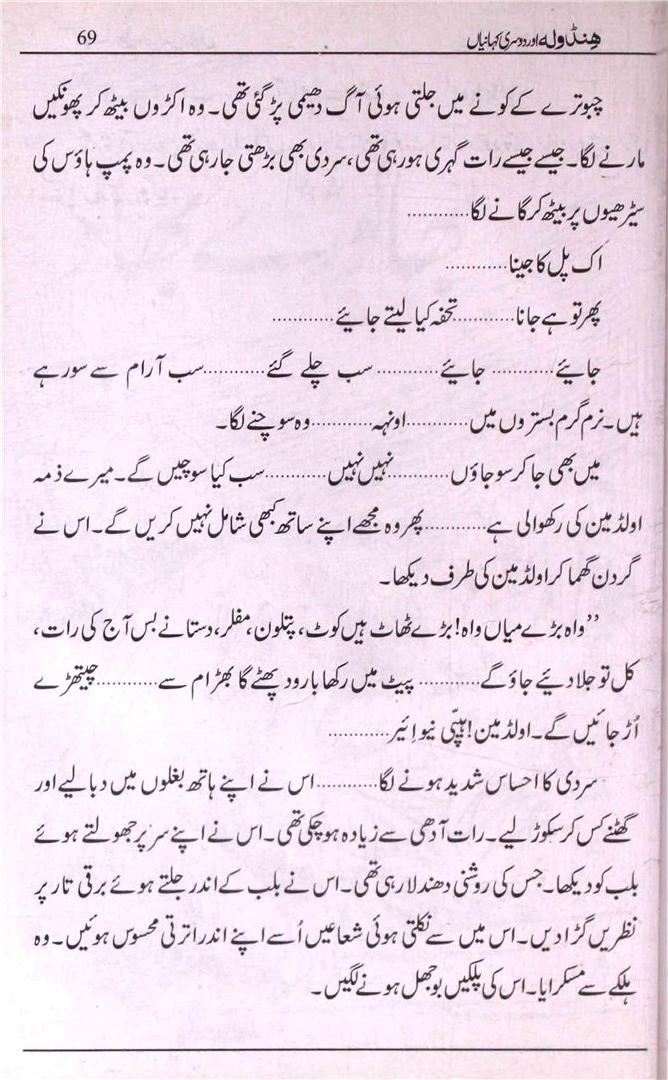 ہنڈولہ اور دوسری کہانیاں 69
چبوترے کے کونے میں جلتی ہوئی آگ دھیمی پڑ گئی تھی۔ وہ اکڑوں بیٹھ کر پھونکیں
مارنے لگا۔ جیسے جیسے رات گہری ہو رہی تھی، سردی بھی بڑھتی جا رہی تھی۔ وہ پمپ ہاؤس کی
سیڑھیوں پر بیٹھ کر گانے لگا............
اک پل کا جینا............
پھر تو ہے جانا............تحفہ کیا لیتے جائیے............
جائیے............ جائیے............ سب چلے گئے............سب آرام سے سو رہے
ہیں۔ نرم گرم بستروں میں............اونہہ............وہ سوچنے لگا۔
میں بھی جا کر سو جاؤں............نہیں نہیں............سب کیا سوچیں گے۔ میرے ذمہ
اولڈ مین کی رکھوالی ہے............پھر وہ مجھے اپنے ساتھ کبھی شامل نہیں کریں گے۔ اس نے
گردن گھما کر اولڈ مین کی طرف دیکھا۔
’’واہ بڑے میاں واہ! بڑے ٹھاٹ ہیں کوٹ، پتلون، مفلر، دستانے بس آج کی رات،
کل تو جلا دیئے جاؤ گے............ پیٹ میں رکھا بارود پھٹے گا بھڑام سے............چیتھڑے
اُڑ جائیں گے۔ اولڈ مین! ہیپّی نیو اِئیر............
سردی کا احساس شدید ہونے لگا............اس نے اپنے ہاتھ بغلوں میں دبا لیے اور
گھٹنے کس کر سکوڑ لیے۔ رات آدھی سے زیادہ ہو چکی تھی۔ اس نے اپنے سر پر جھولتے ہوئے
بلب کو دیکھا۔ جس کی روشنی دھندلا رہی تھی۔ اس نے بلب کے اندر جلتے ہوئے برقی تار پر
نظریں گڑا دیں۔ اس میں سے نکلتی ہوئی شعاعیں اُسے اپنے اندر اترتی محسوس ہوئیں۔ وہ
ہلکے سے مسکرایا۔ اس کی پلکیں بوجھل ہونے لگیں۔